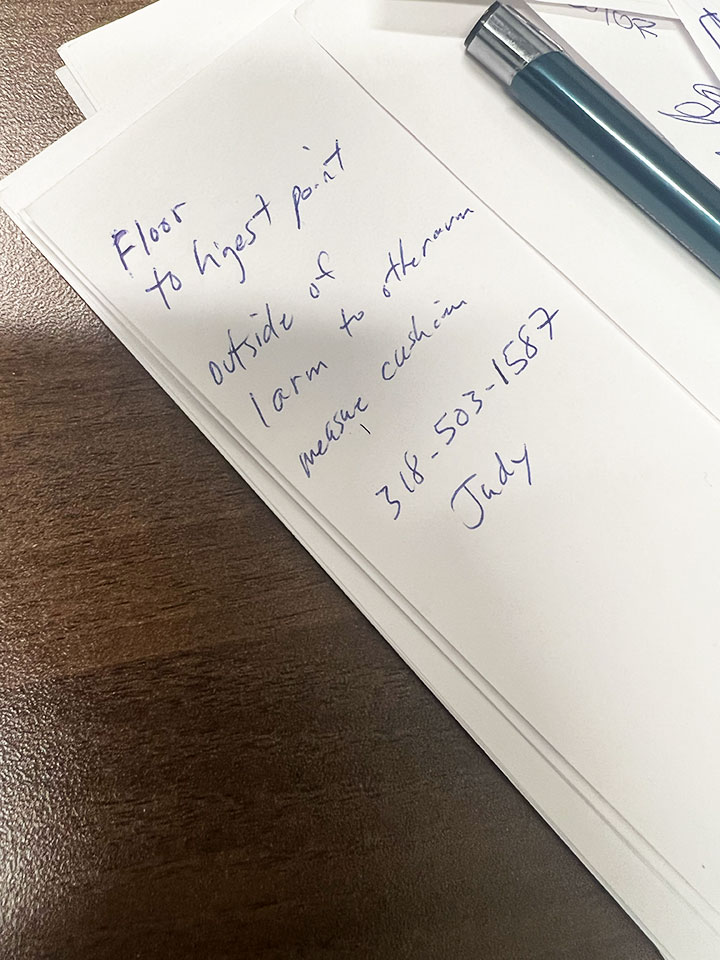 Floor
to higest point
outside of
1 arm to other arm
measure cushion
318-503-1587
Judy